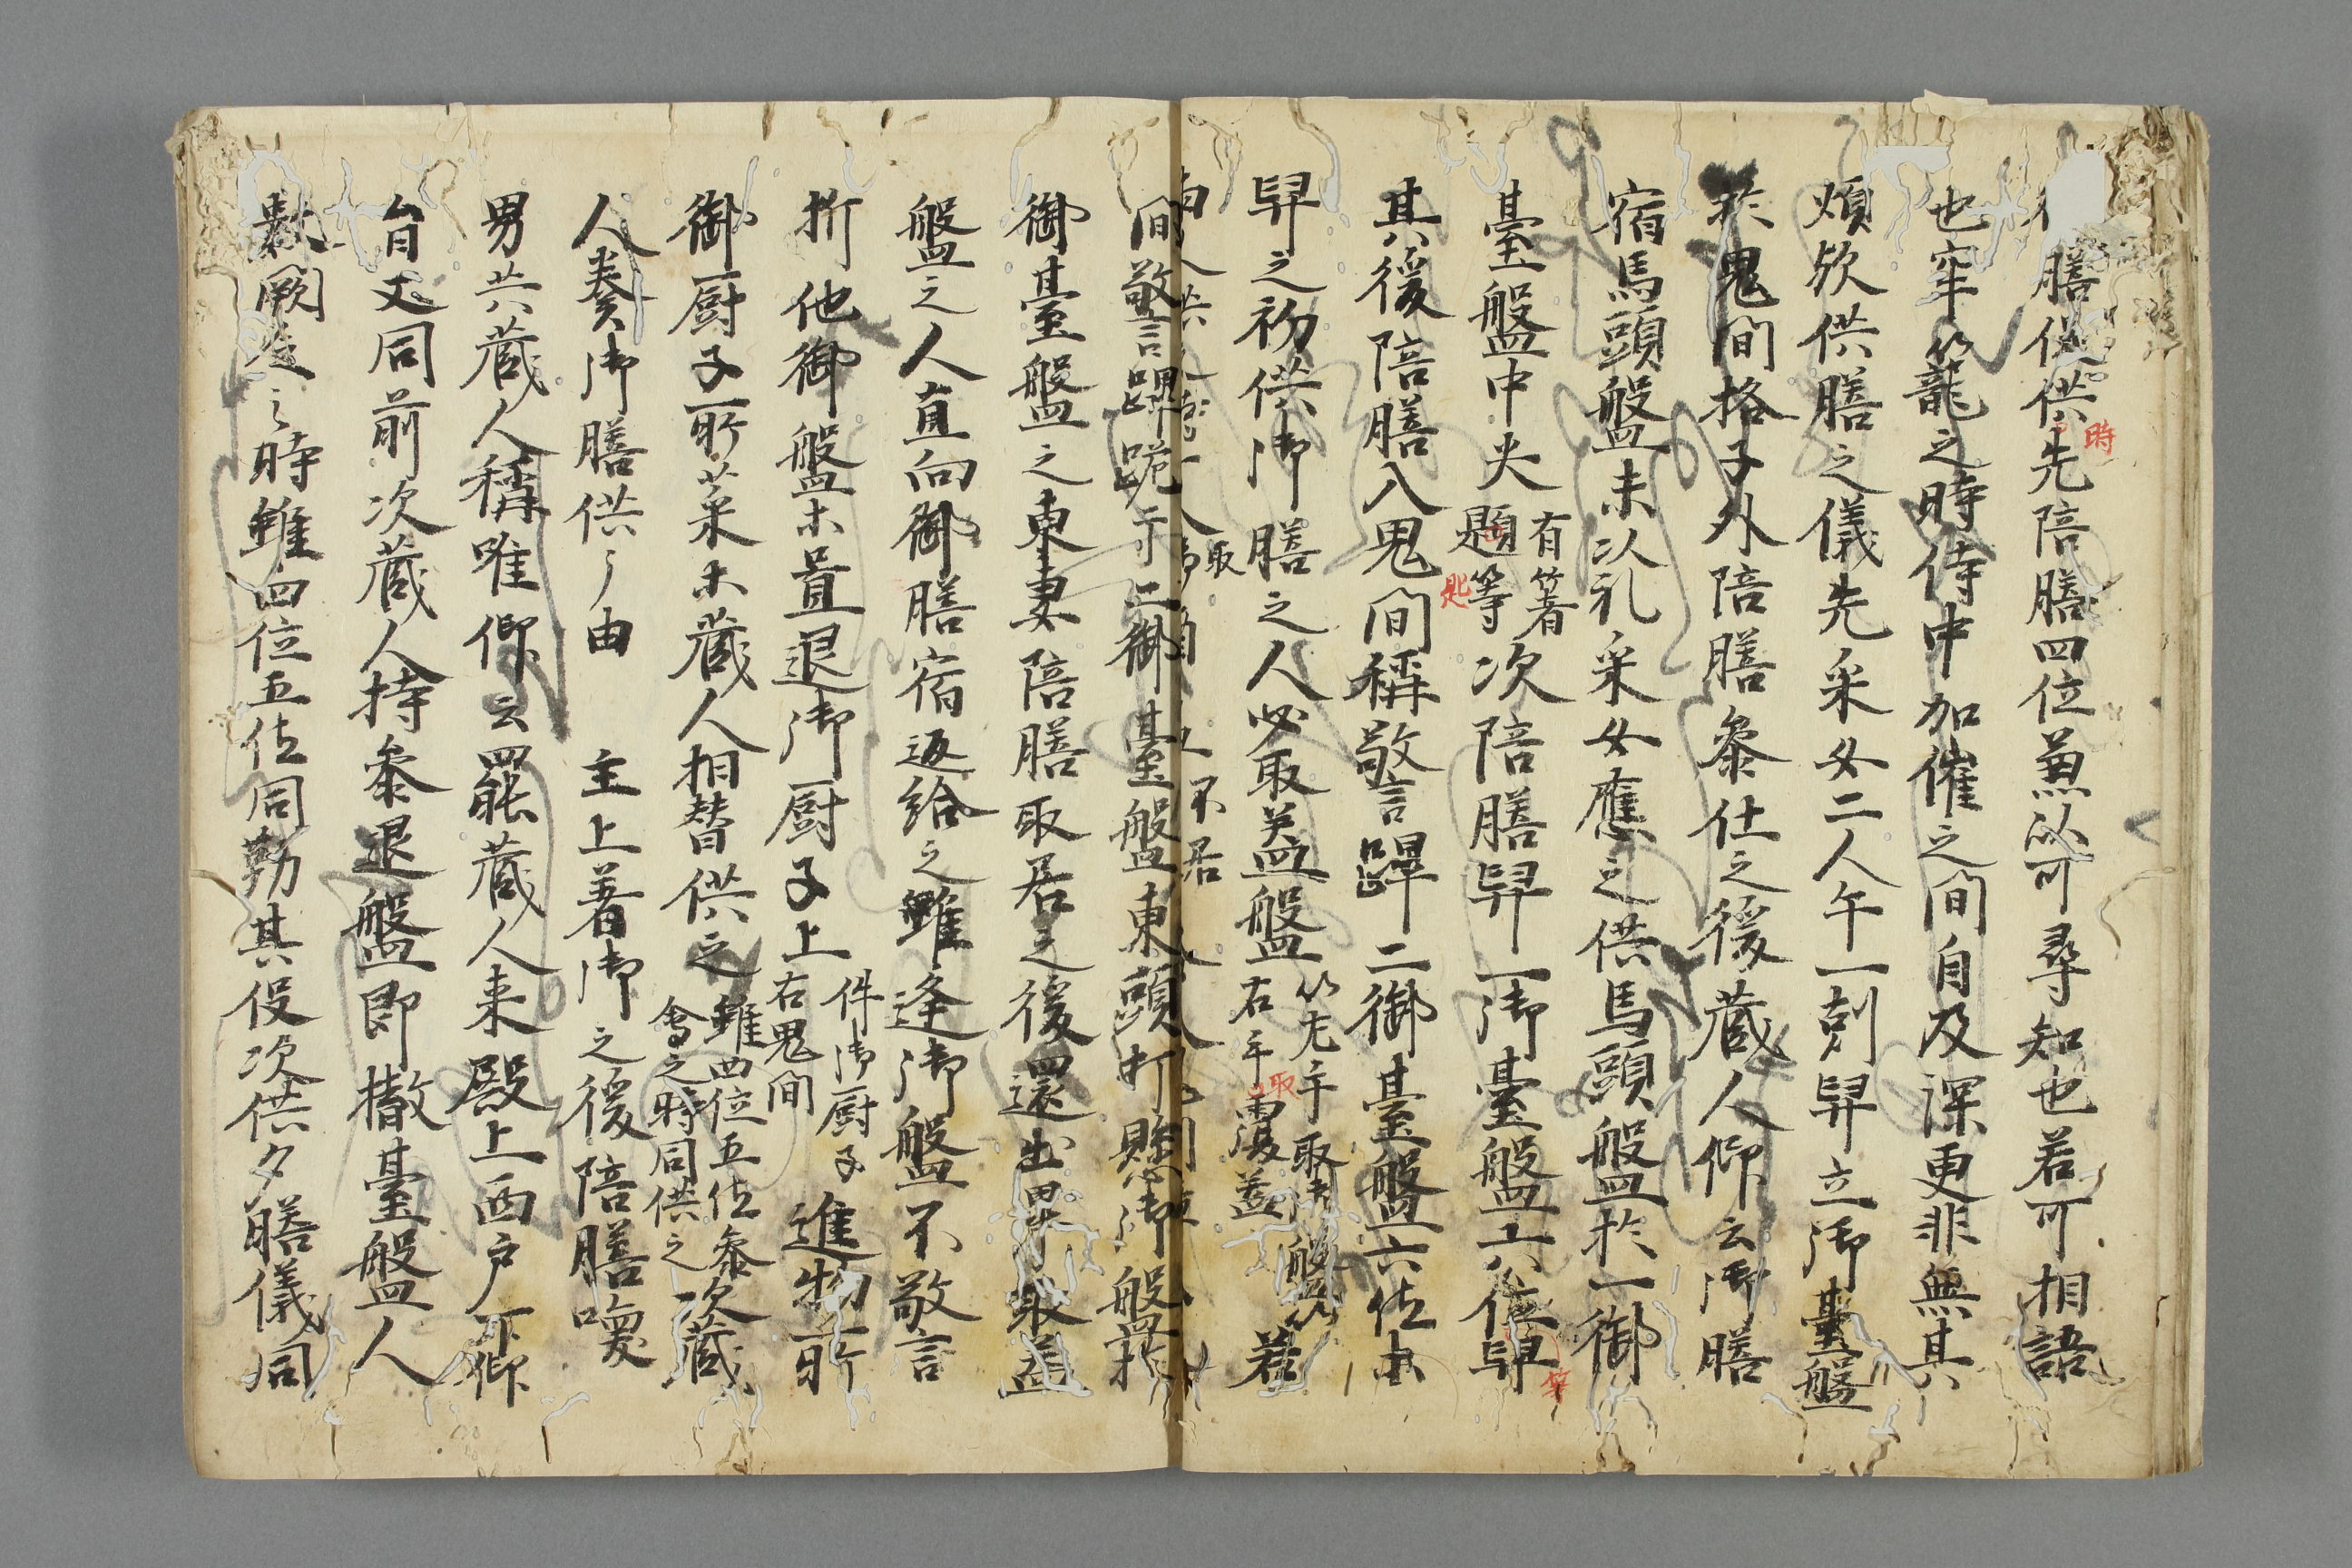 膳供先陪膳四位兼必可尋知也若可相語
時
也窂籠之時侍中加催之間自及深更非無其
煩欤供膳之儀先采女二人午一剋舁立御臺盤
於鬼間格子外陪膳參仕之後蔵人仰云御膳
宿馬頭盤未以礼采女應之供馬頭盤於一御
臺盤中央
有箸
匙等
次陪膳舁一御臺盤六位舁
其後陪膳入鬼間稱敬言蹕二御臺盤六位
舁之初供御膳之人必取盖盤
以左手取御盤以
右手覆盖
若
間敬言蹕跪于二御臺盤東頭打懸御盤於
御臺盤之東妻陪膳取居之後還出畢取盖
盤之人直向御膳宿返給之雖逢御盤不敬言
折他御盤木置退御厨子上
件御厨子
右鬼間
進物所
御厨子所菜木蔵人相替供之
雖四位五位參
會之時同供之
次蔵
人奏御膳供了由 主上著御之後陪膳喚
男共蔵人稱唯仰云罷蔵人来殿上西戸下仰
台又同前次蔵人持參退盤即撤臺盤人
數闕之時雖四位五位同勤其役次供夕膳儀同